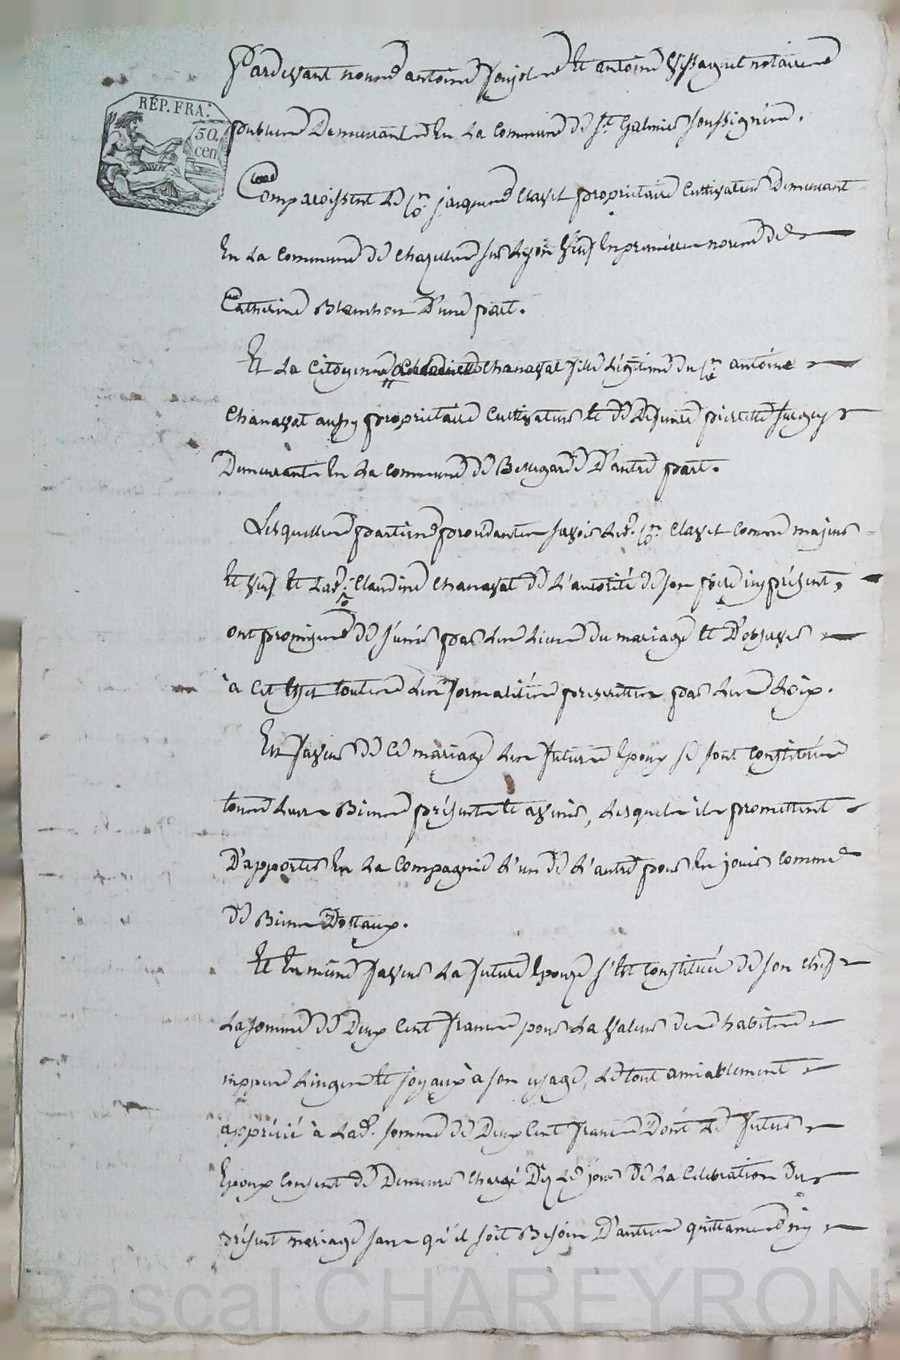 RÉP. FRA.
50
cen
Pardevant nous antoine et antoine notaires
publics Demeurant En La Commune de St. Galmier soussignés.
Comparoissent Le Cn. jacques Clavel propriétaire Cultivateur Demeurant
En La Commune de Chazelles sur Lyon veuf En premieres noces de
Catherine D'une part.
Et La Citoyenne Chanavat fille Légitime du Cn. antoine
Chanavat aussy propriétaire Cultivateur et de Défunte pierrette
Demeurante En La Commune de Bellegarde D'autre part.
Lesquelles parties procedantes savoir Led. Cn. Clavel comme majeur
et veuf et Lad. Cne. Claudine Chanavat de L'autorité de son père icy présent,
ont promis de s'unir par Les Liens du mariage et D'observer
à Cet Effet toutes Les formalités prescrittes par Les Loix.
En faveur de Ce mariage Les futurs Epoux se sont Constitués
tous Leurs Biens présents et avenir, Lesquels ils promettent
D'apporter En La Compagnie L'un de L'autre pour En jouir comme
de Biens Dottaux.
Et En même faveur La future Epouze s'Est Constituée de son chef
La somme de Deux Cent francs pour La valeur des habits
nippes Linges et joyaux à son usage, Le tout amiablement
apprécié à Lad. somme de Deux Cent francs Dont Le futur
Epoux Consent de Demeurer Chargé Dez Le jour de La Celebration du
présent mariage sans qu'il soit Besoin D'autres quittances ny
Pascal CHAREYRON